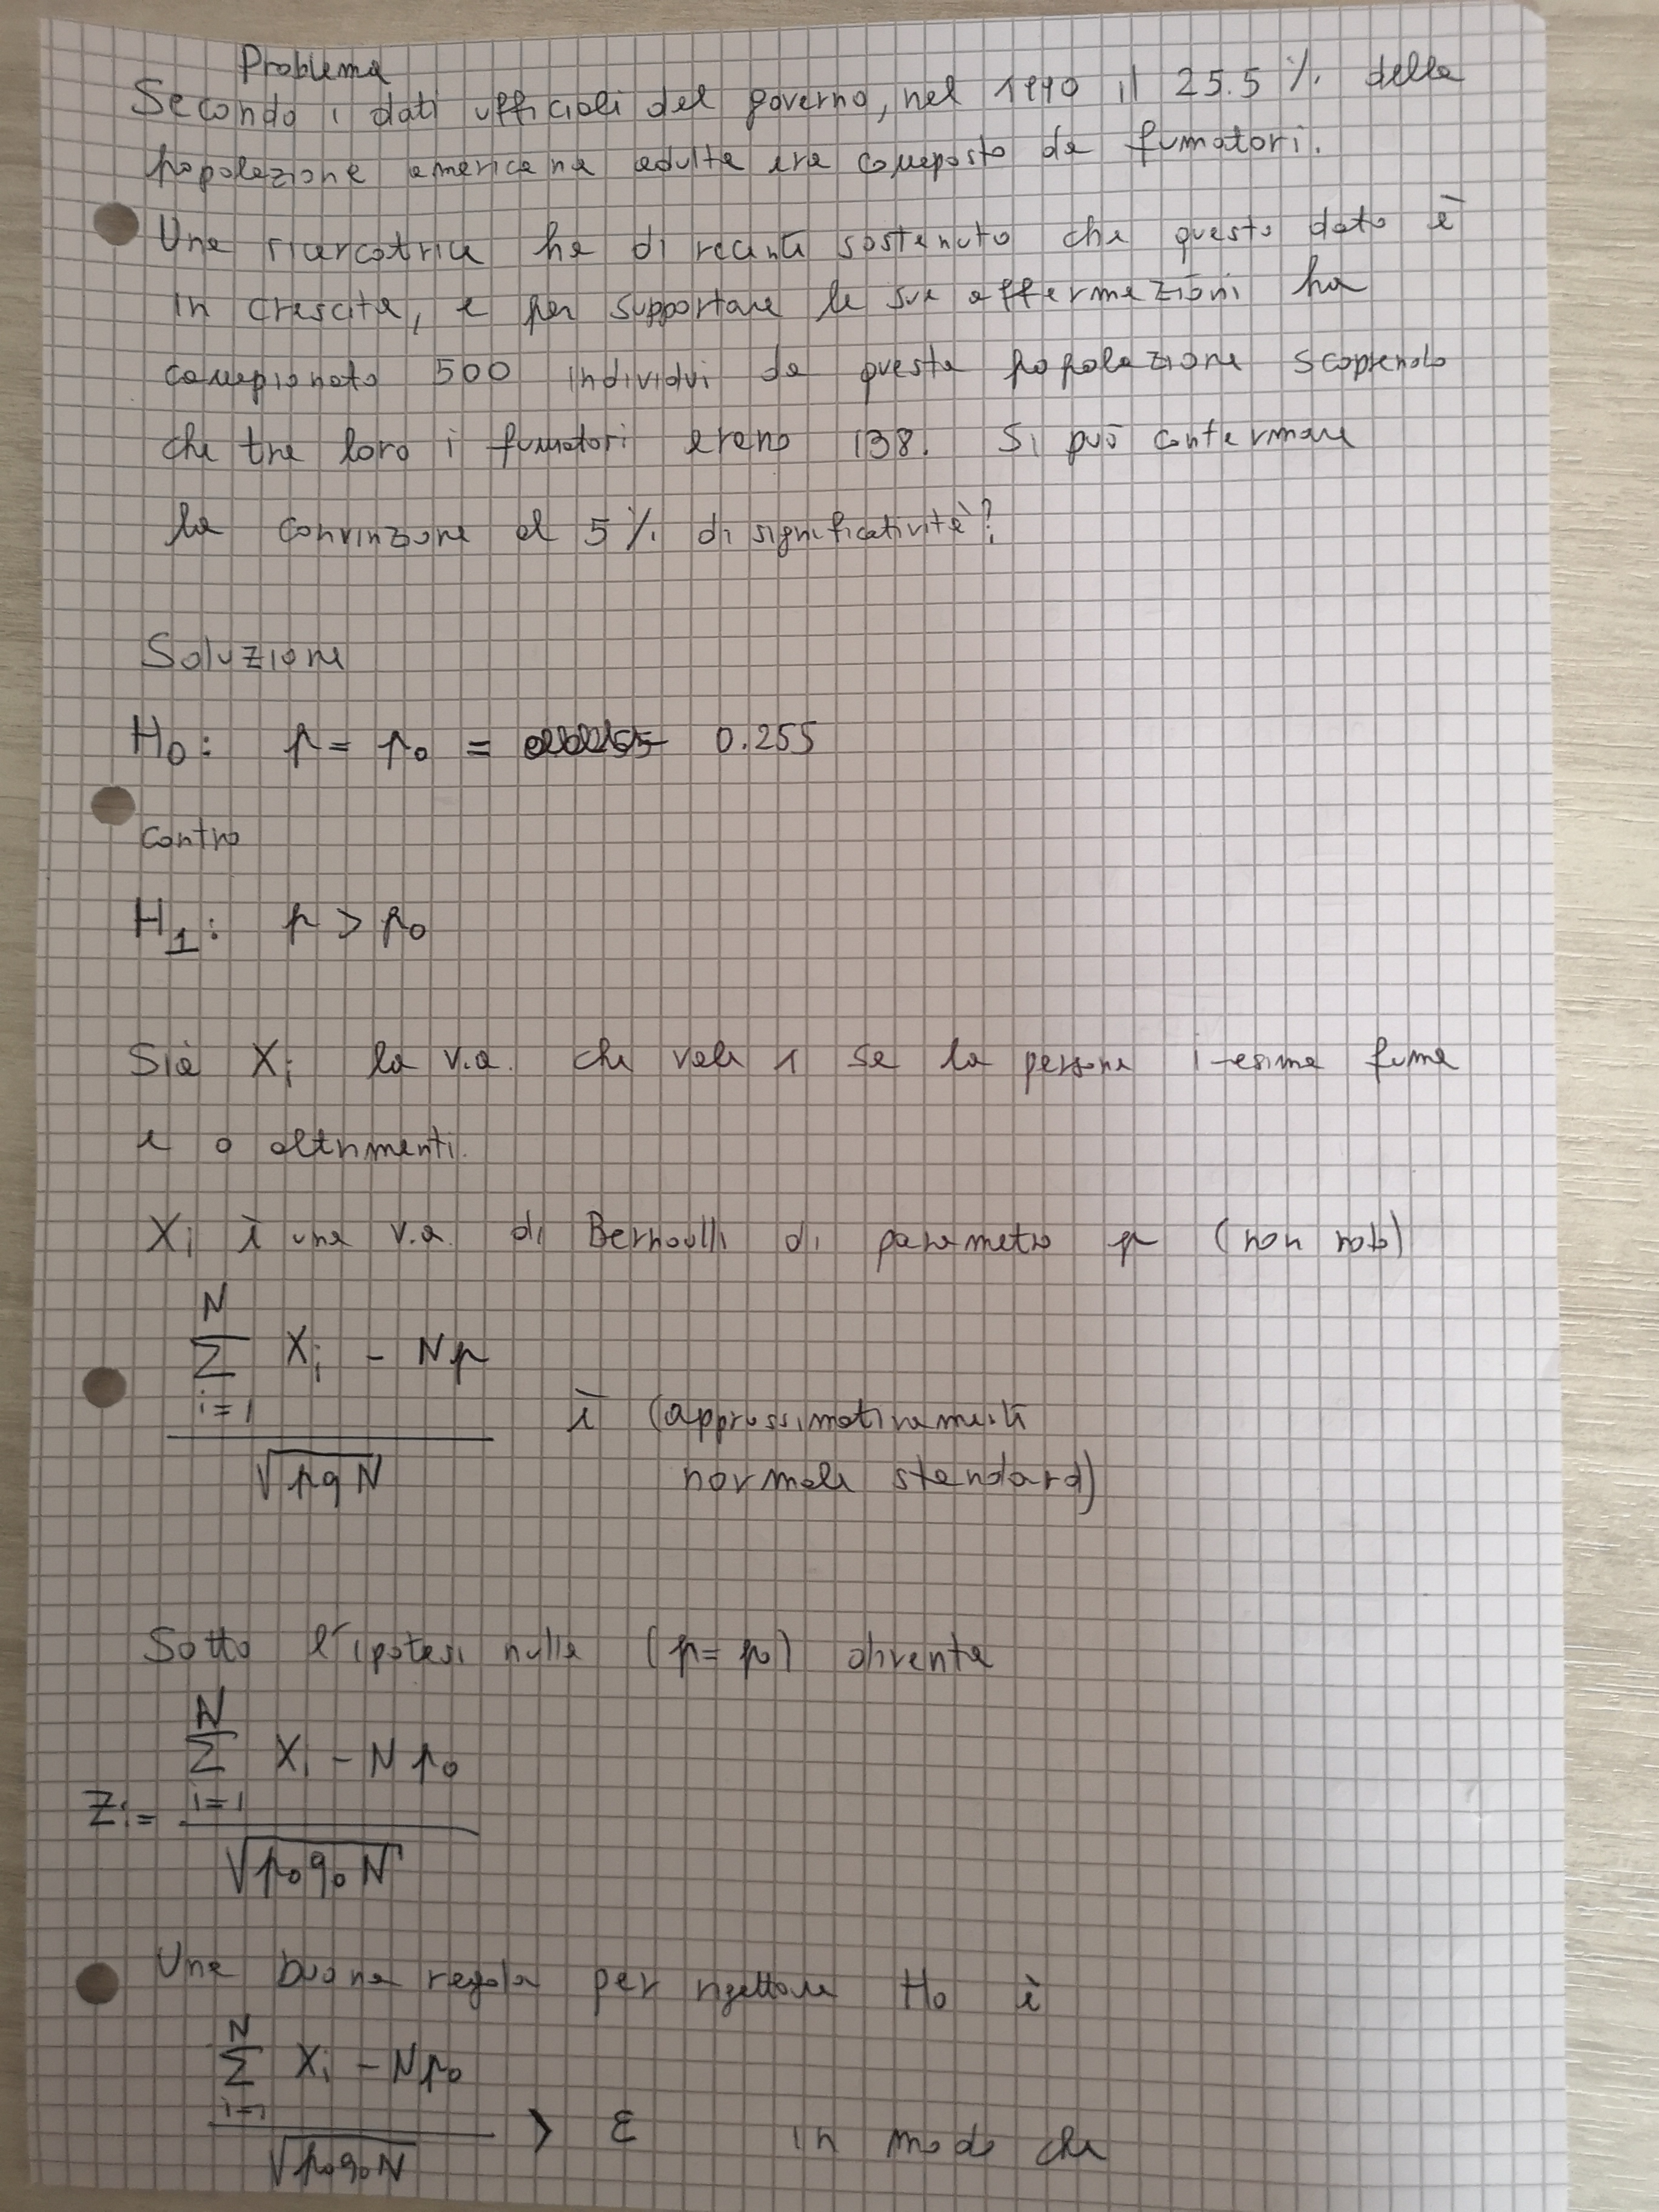 Problema
Secondo i dati ufficiali del governo, nel 1990 il 25.5 % della
popolazione americana adulta era composto da fumatori.
Una ricercatrice ha di recente sostenuto che questo dato è
in crescita, e per supportare le sue affermazioni ha
campionato 500 individui da questa popolazione scoprendo
che tra loro i fumatori erano 138. Si può confermare
la convinzione al 5 % di significatività?
Soluzione
H₀: p = p₀ = 0.255
contro
H₁: p > p₀
Sia Xᵢ la v.a. che vale 1 se la persona i-esima fuma
e 0 altrimenti.
Xᵢ è una v.a. di Bernoulli di parametro p (non noto)
N
Σ Xᵢ - Np
i=1
è (approssimativamente
√pqN normale standard)
Sotto l'ipotesi nulla (p = p₀) diventa
N
Σ Xᵢ - N p₀
Z:= i=1
√p₀q₀N
Una buona regola per rigettare H₀ è
N
Σ Xᵢ - Np₀
i=1
> ε in modo che
√p₀q₀N